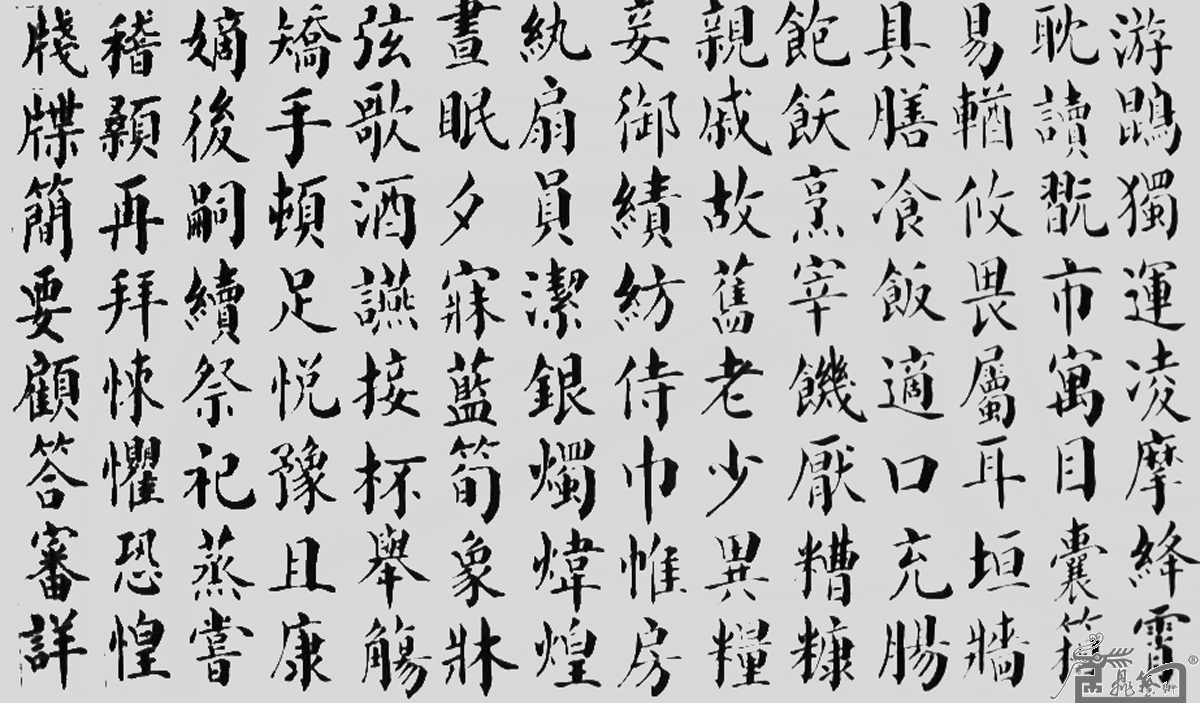 游鵾獨運凌摩絳霄
耽讀翫市寓目囊箱
易輶攸畏屬耳垣牆
具膳飡飯適口充腸
飽飫烹宰饑厭糟糠
親戚故舊老少異糧
妾御績紡侍巾帷房
紈扇員潔銀燭煒煌
晝眠夕寐藍筍象牀
弦歌酒讌接杯舉觴
矯手頓足悅豫且康
嫡後嗣續祭祀蒸嘗
稽顙再拜悚懼恐惶
牋牒簡要顧答審詳